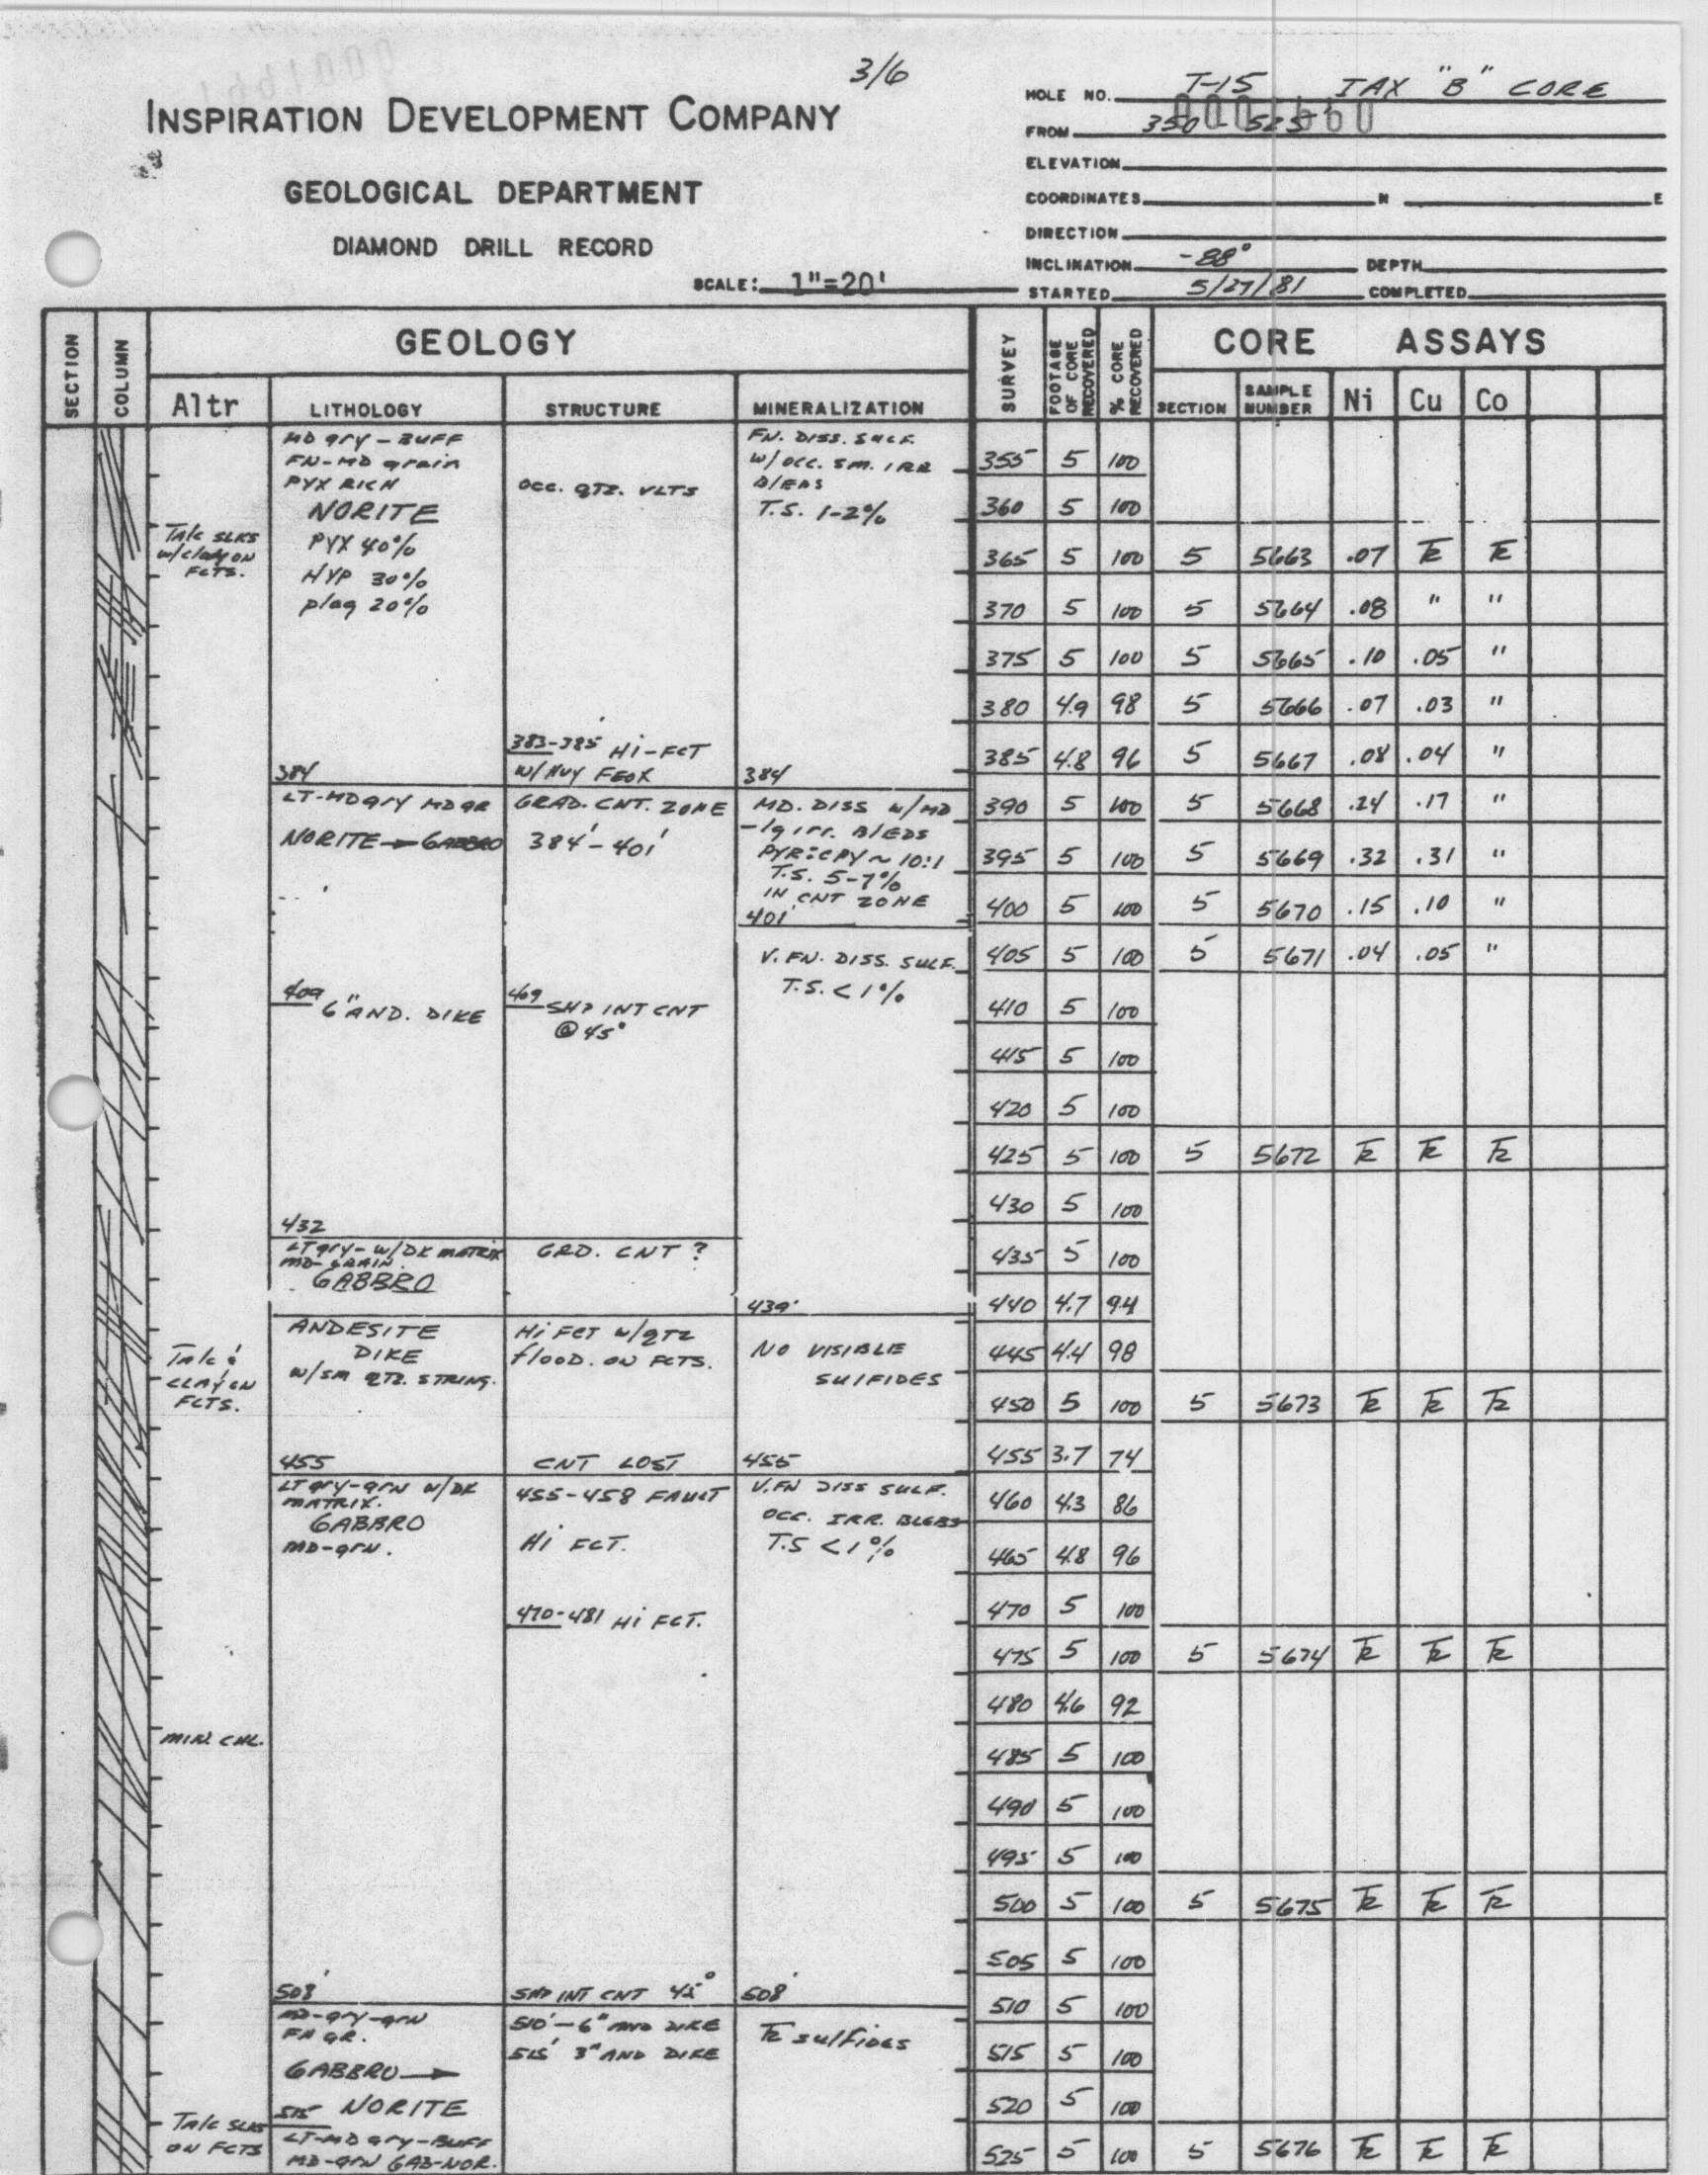 3/6
INSPIRATION DEVELOPMENT COMPANY
GEOLOGICAL DEPARTMENT
DIAMOND DRILL RECORD
SCALE: 1"=20'
HOLE NO. T-15 IAX "B" CORE
FROM 350 - 525
ELEVATION
COORDINATES N E
DIRECTION
INCLINATION -88° DEPTH
STARTED 5/27/81 COMPLETED
SECTION COLUMN GEOLOGY SURVEY FOOTAGE OF CORE RECOVERED % CORE RECOVERED CORE ASSAYS
Altr LITHOLOGY STRUCTURE MINERALIZATION SECTION SAMPLE NUMBER Ni Cu Co
Talc SLKS
w/clay ON
FCTS.
Talc &
CLAY ON
FCTS.
MIN. CHL.
Talc SLKS
ON FCTS
MD gry - BUFF
FN-MD grain
PYX RICH
NORITE
PYX 40%
HYP 30%
plag 20%
384
LT-MD gry MD GR
NORITE → GABBRO
409
6" AND. DIKE
432
LT gry - w/DK MATRIX
MD-GRAIN.
GABBRO
ANDESITE
DIKE
w/SM QTZ. STRING.
455
LT gry-grn w/DK
MATRIX.
GABBRO
MD-grn.
508'
MD-gry-grn
FN GR.
GABBRO →
NORITE
515
LT-MD gry-BUFF
MD-grn GAB-NOR.
OCC. QTZ. VLTS
383-385 Hi-FCT
W/HVY FEOX
GRAD. CNT. ZONE
384'-401'
409
SHP INT CNT
@ 45°
GRD. CNT ?
Hi FCT w/QTZ
flood. ON FCTS.
CNT LOST
455-458 FAULT
Hi FCT.
470-481 Hi FCT.
SHP INT CNT 45°
510'-6" AND DIKE
515' 3" AND DIKE
FN. DISS. SULF.
W/OCC. SM. IRR
BlEBS
T.S. 1-2%
384
MD. DISS w/MD
-lg irr. BlEBS
PYR:CPY ~ 10:1
T.S. 5-7%
IN CNT ZONE
401'
V. FN. DISS. SULF.
T.S. < 1%
439'
NO VISIBLE
SUlFIDES
455
V.FN DISS SULF.
OCC. IRR. BLEBS
T.S < 1%
508'
TR sulfides
355 5 100
360 5 100
365 5 100 5 5663 .07 TR TR
370 5 100 5 5664 .08 " "
375 5 100 5 5665 .10 .05 "
380 4.9 98 5 5666 .07 .03 "
385 4.8 96 5 5667 .08 .04 "
390 5 100 5 5668 .24 .17 "
395 5 100 5 5669 .32 .31 "
400 5 100 5 5670 .15 .10 "
405 5 100 5 5671 .04 .05 "
410 5 100
415 5 100
420 5 100
425 5 100 5 5672 TR TR TR
430 5 100
435 5 100
440 4.7 94
445 4.4 98
450 5 100 5 5673 TR TR TR
455 3.7 74
460 4.3 86
465 4.8 96
470 5 100
475 5 100 5 5674 TR TR TR
480 4.6 92
485 5 100
490 5 100
495 5 100
500 5 100 5 5675 TR TR TR
505 5 100
510 5 100
515 5 100
520 5 100
525 5 100 5 5676 TR TR TR